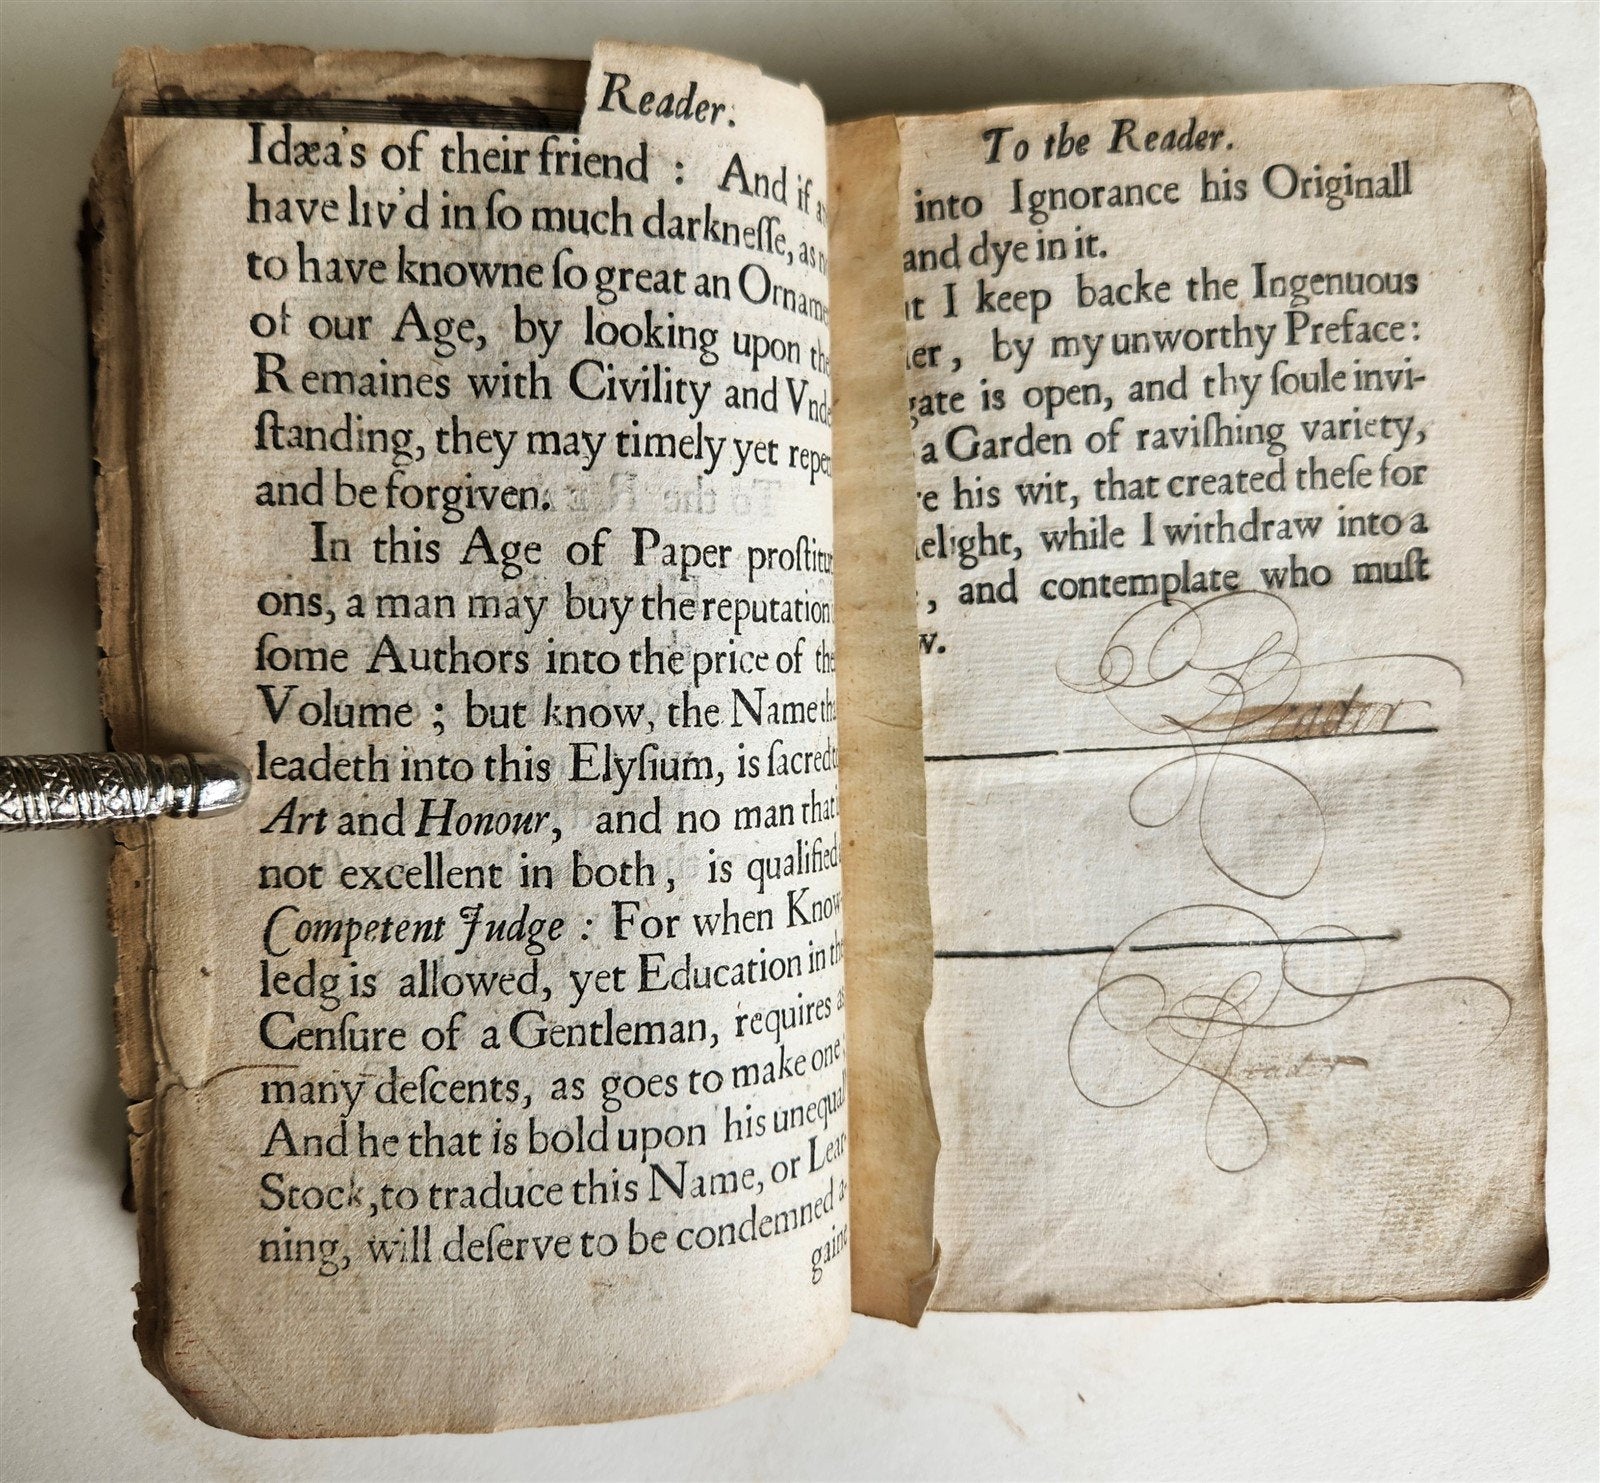 Reader.
Idæa's of their friend : And if
have liv'd in ſo much darkneſſe, as
to have knowne ſo great an Orname
of our Age, by looking upon the
Remaines with Civility and Vnde
ſtanding, they may timely yet repen
and be forgiven.
In this Age of Paper proſtitu
ons, a man may buy the reputation
ſome Authors into the price of the
Volume ; but know, the Name th
leadeth into this Elyſium, is ſacred t
Art and Honour, and no man that
not excellent in both, is qualified
Competent Judge : For when Know-
ledg is allowed, yet Education in the
Cenſure of a Gentleman, requires as
many deſcents, as goes to make one
And he that is bold upon his unequall
Stock, to traduce this Name, or Lear-
ning, will deſerve to be condemned a-
gaine
To the Reader.
into Ignorance his Originall
and dye in it.
t I keep backe the Ingenuous
er, by my unworthy Preface:
gate is open, and thy ſoule invi-
a Garden of raviſhing variety,
e his wit, that created theſe for
elight, while I withdraw into a
, and contemplate who muſt
w.
Reader
Reader